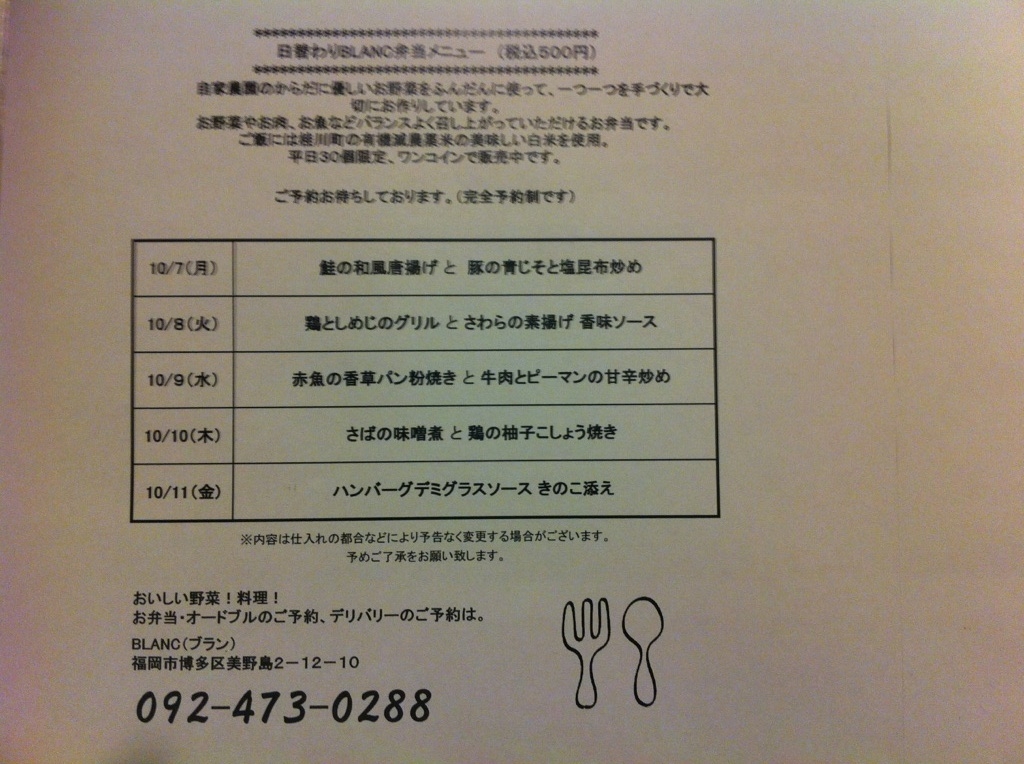 ********************************************
日替わりBLANC弁当メニュー （税込500円）
********************************************
自家農園のからだに優しいお野菜をふんだんに使って、一つ一つを手づくりで大
切にお作りしています。
お野菜やお肉、お魚などバランスよく召し上がっていただけるお弁当です。
ご飯には桂川町の有機減農薬米の美味しい白米を使用。
平日30個限定、ワンコインで販売中です。
ご予約お待ちしております。（完全予約制です）
10/7（月） 鮭の和風唐揚げ と 豚の青じそと塩昆布炒め
10/8（火） 鶏としめじのグリル と さわらの素揚げ 香味ソース
10/9（水） 赤魚の香草パン粉焼き と 牛肉とピーマンの甘辛炒め
10/10（木） さばの味噌煮 と 鶏の柚子こしょう焼き
10/11（金） ハンバーグデミグラスソース きのこ添え
※内容は仕入れの都合などにより予告なく変更する場合がございます。
予めご了承をお願い致します。
おいしい野菜！料理！
お弁当・オードブルのご予約、デリバリーのご予約は。
BLANC（ブラン）
福岡市博多区美野島2－12－10
092-473-0288